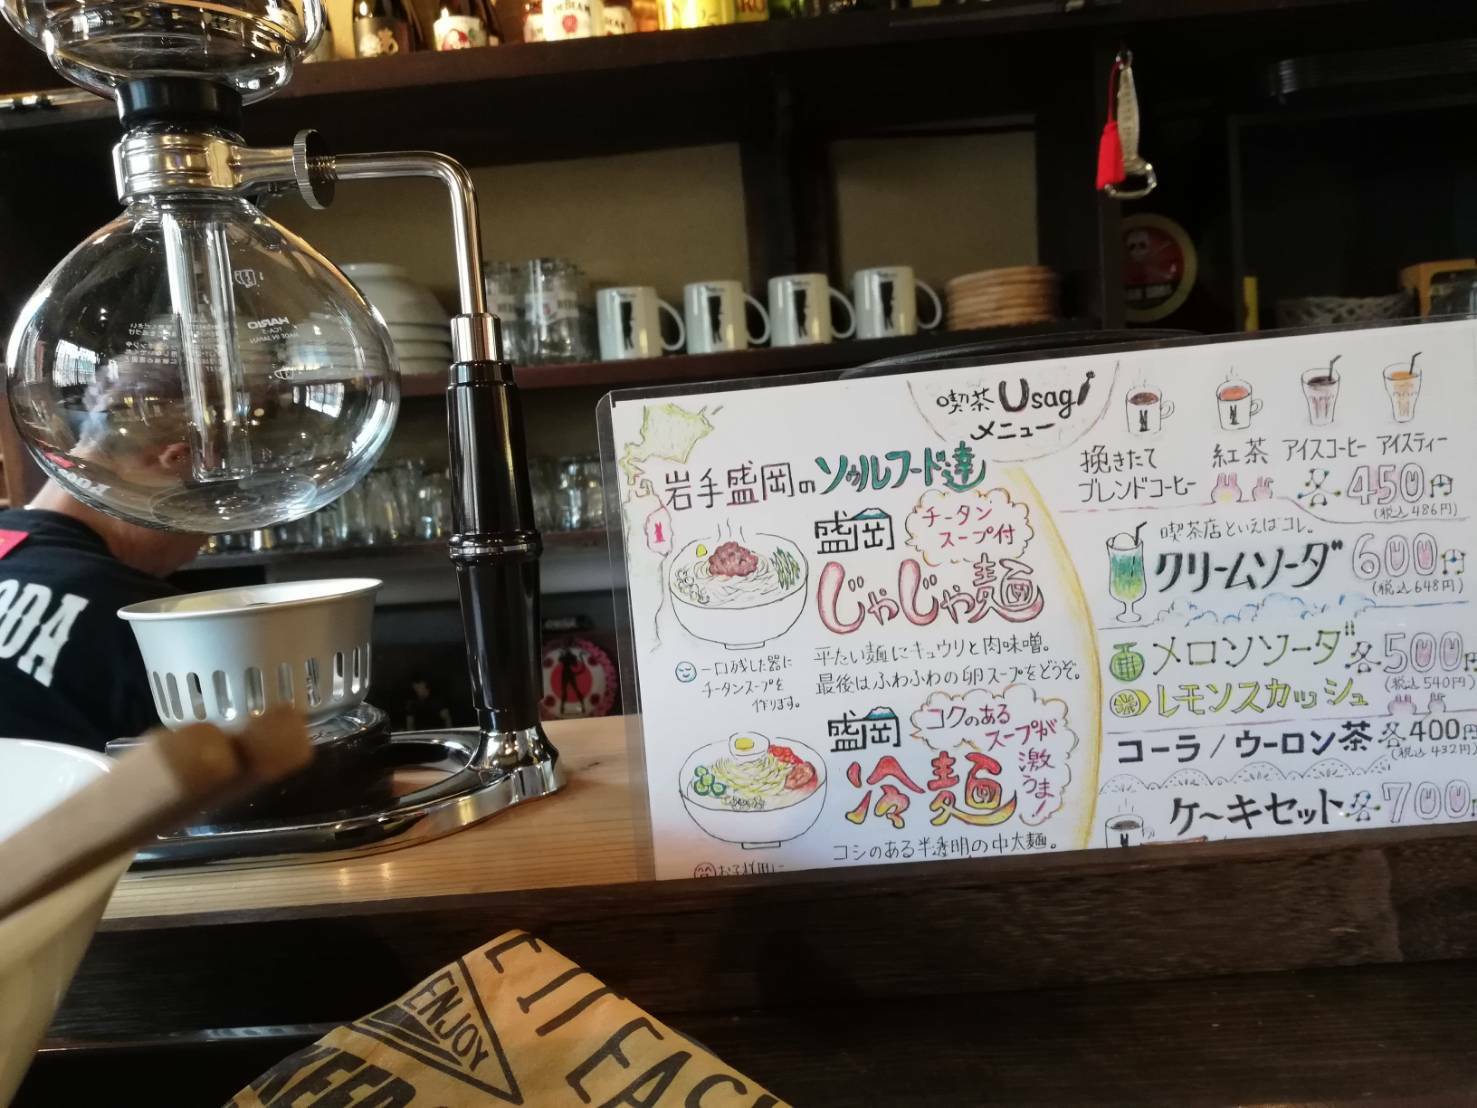 喫茶 Usagi
メニュー
岩手盛岡のソウルフード達
盛岡
チータン
スープ付
じゃじゃ麺
平たい麺にキュウリと肉味噌。
最後はふわふわの卵スープをどうぞ。
一口残した器に
チータンスープを
作ります。
盛岡
コクのある
スープが
激
うま!
冷麺
コシのある半透明の中太麺。
挽きたて
ブレンドコーヒー
紅茶
アイスコーヒー
アイスティー
各450円
(税込486円)
喫茶店といえばコレ。
クリームソーダ
600円
(税込648円)
メロンソーダ
レモンスカッシュ
各500円
(税込540円)
コーラ/ウーロン茶
各400円
(税込432円)
ケーキセット
各700
HARIO
TCA-3
MADE IN JAPAN
ODA
ENJOY
KEEP
IT EASY